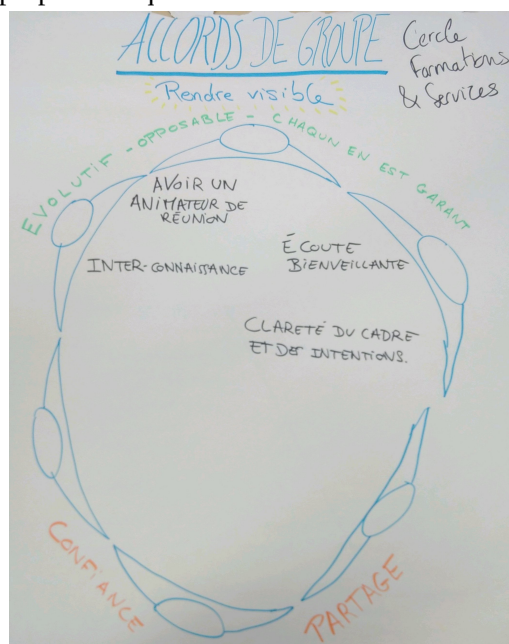 ACCORDS DE GROUPE
Cercle
Formations
& Services
Rendre visible
EVOLUTIF - OPPOSABLE - CHAQUN EN EST GARANT
AVOIR UN
ANIMATEUR DE
RÉUNION
INTER-CONNAISSANCE
ÉCOUTE
BIENVEILLANTE
CLARETÉ DU CADRE
ET DES INTENTIONS.
CONFIANCE
PARTAGE